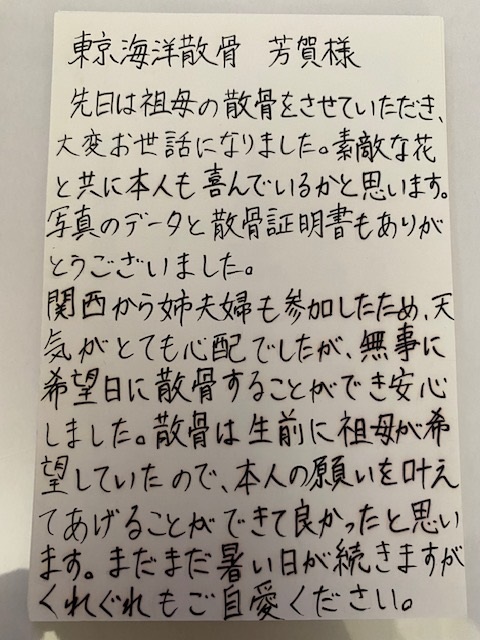 東京海洋散骨 芳賀様
先日は祖母の散骨をさせていただき、
大変お世話になりました。素敵な花
と共に本人も喜んでいるかと思います。
写真のデータと散骨証明書もありが
とうございました。
関西から姉夫婦も参加したため、天
気がとても心配でしたが、無事に
希望日に散骨することができ安心
しました。散骨は生前に祖母が希
望していたので、本人の願いを叶え
てあげることができて良かったと思い
ます。まだまだ暑い日が続きますが
くれぐれもご自愛ください。